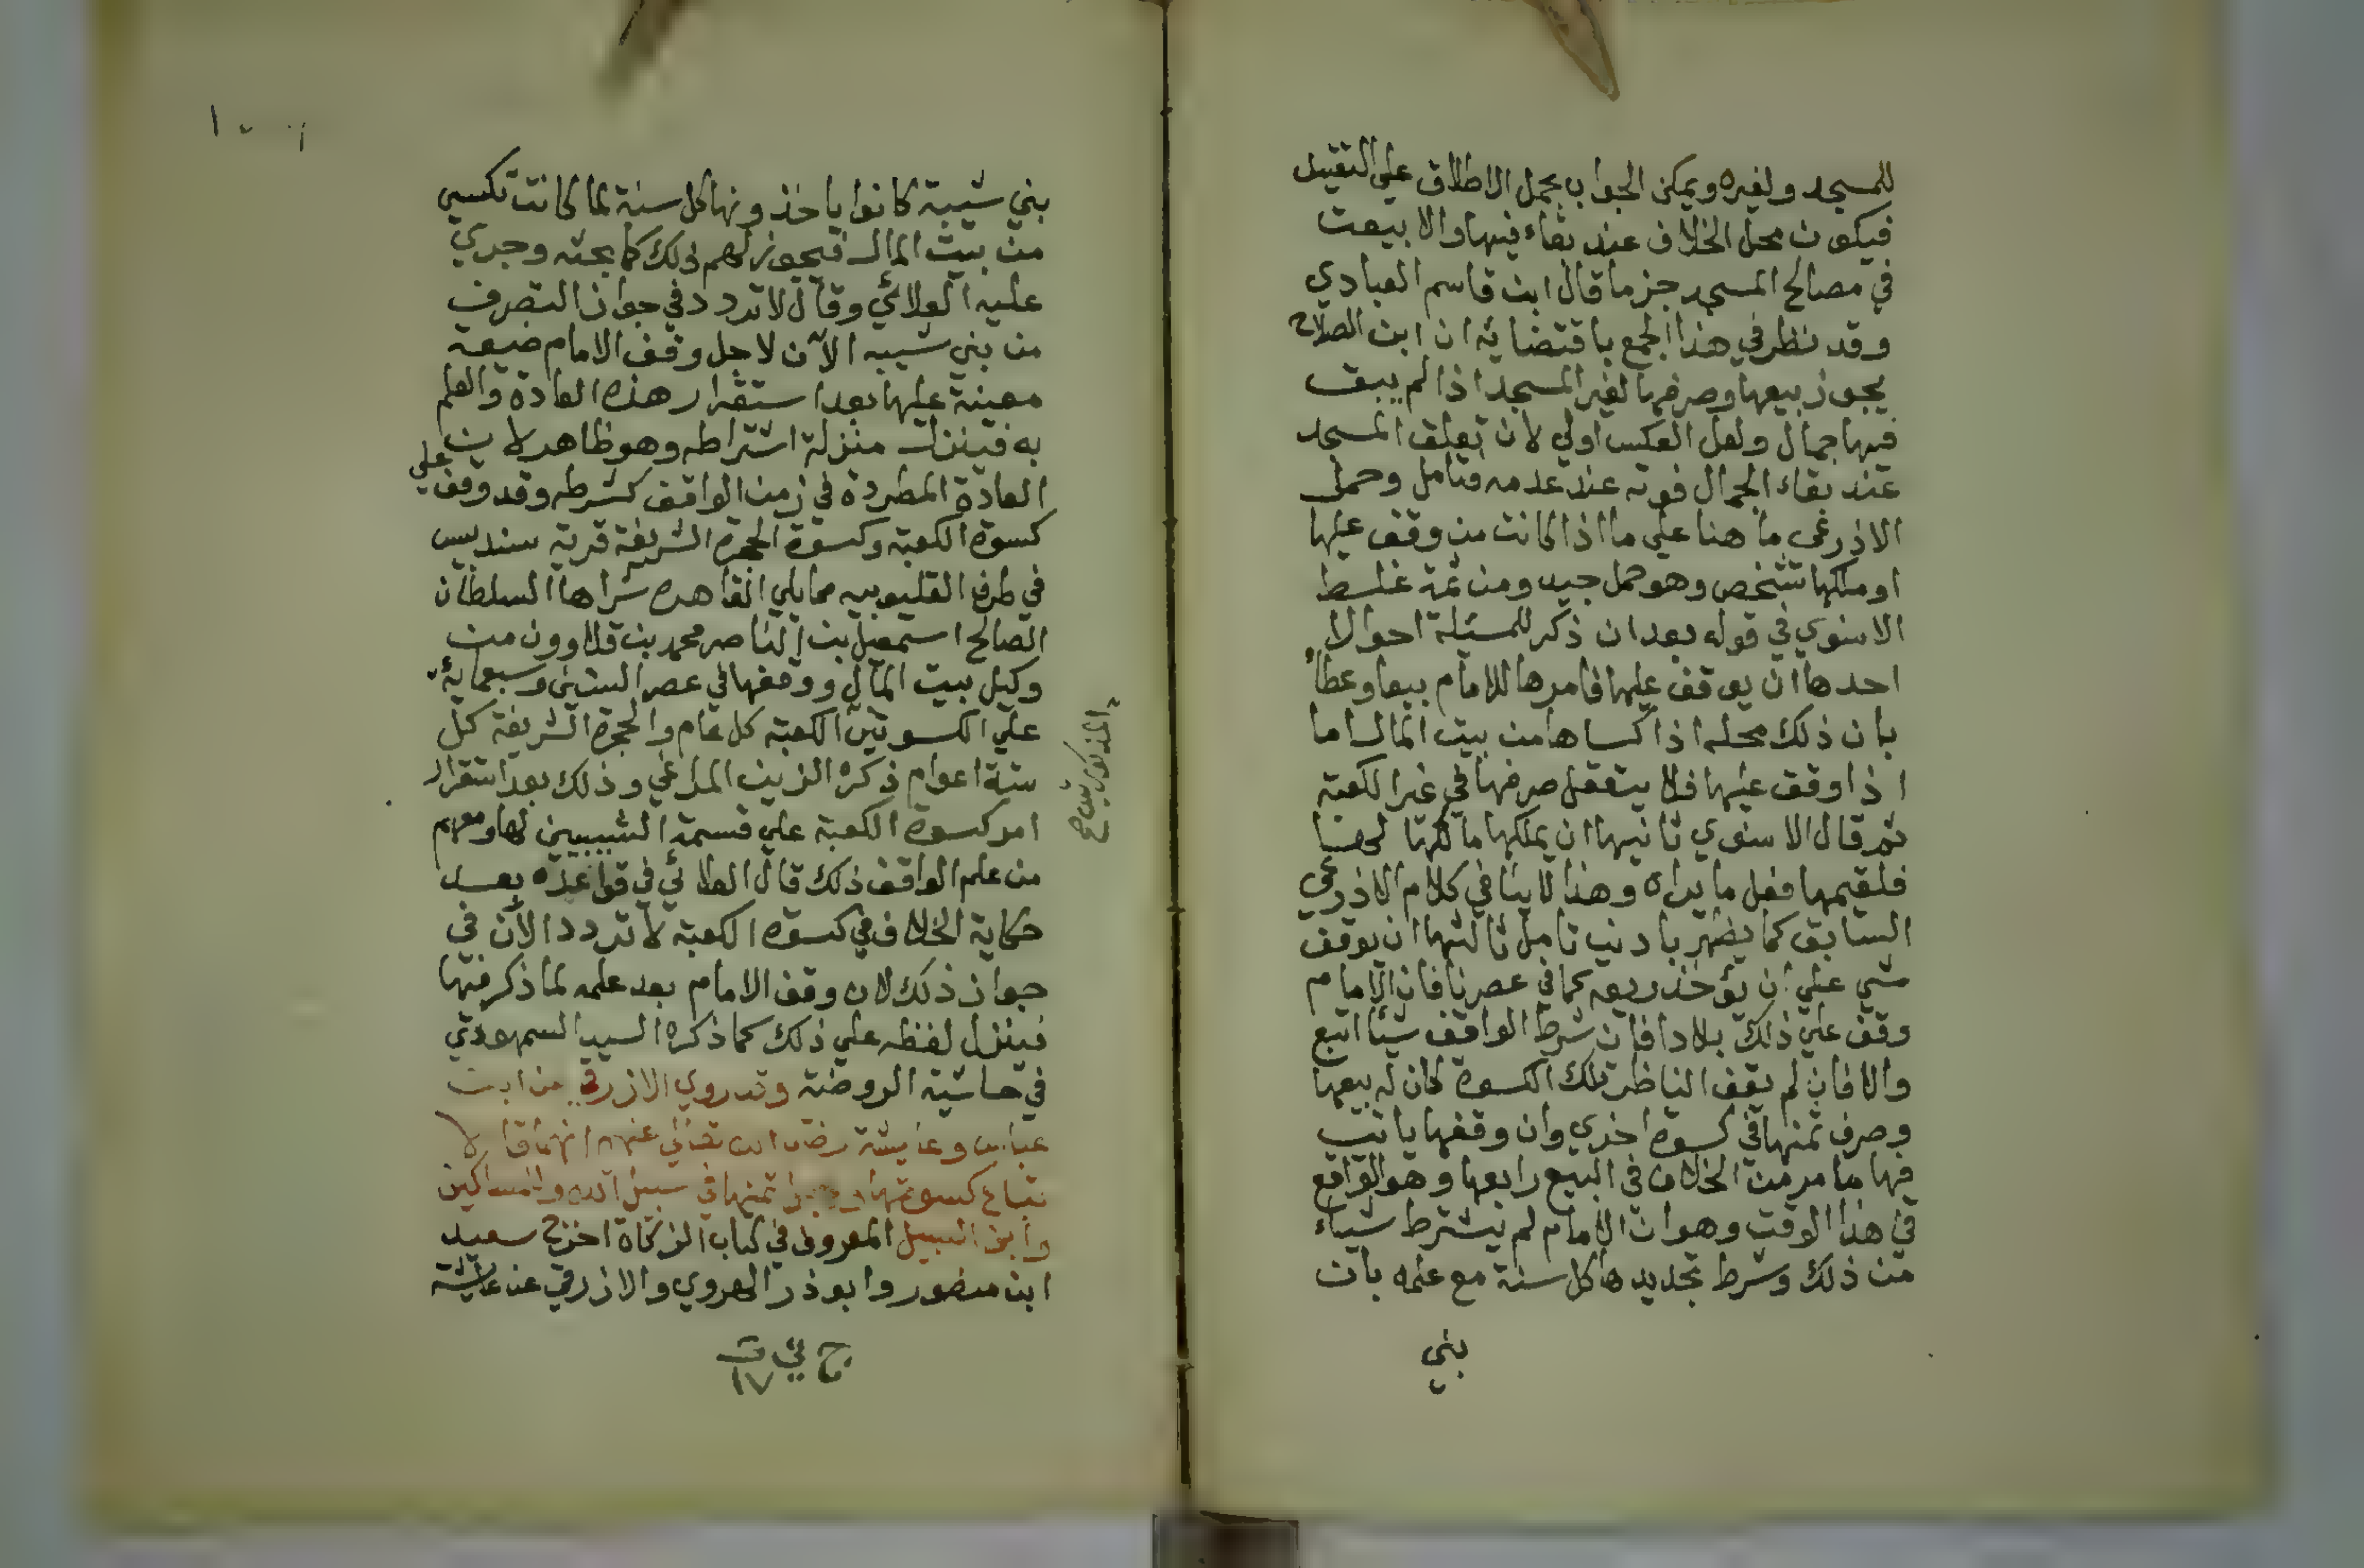 للمسجد ولغيره ويمكن الجواب بحمل الاطلاق علي التقييد
فيكون محل الخلاف عند بقاء فيها والا بيعت
في مصالح المسجد جزما قال ابن قاسم العبادي
وقد نظر في هذا الجمع باقتضائه ان ابن الصلاح
يجوز بيعها وصرفها لغير المسجد اذا لم يبق
فيها جمال ولعل العكس اولي لان تعلق المسجد
عند بقاء الجمال فوته عند عدمه فتامل وحمل
الاذرعي ما هنا علي ما اذا كانت من وقف عليها
او ملكها شخص وهو حمل جيد ومن ثمة غلط
الاسنوي في قوله بعد ان ذكر للمسئلة احوالا
احدها ان يوقف عليها فامرها للامام بيعا وعطاً
بان ذلك محله اذا كساها من بيت المال اما
اذا وقف عليها فلا يتعقل صرفها في غير الكعبة
ثم قال الاسنوي ثانيها ان يملكها مالكها لها
فلقيمها فعل ما يراه وهذا لا ينافي كلام الاذرعي
السابق كما يظهر بادني تامل ثالثها ان يوقف
شي علي ان يؤخذ ريعه كما في عصرنا فان الامام
وقف علي ذلك بلادا فان شرط الواقف شيأ اتبع
والا فان لم يقف الناظر تلك الكسوة كان له بيعها
وصرف ثمنها في كسوة اخري وان وقفها ياتي
فيها ما مر من الخلاف في البيع رابعها وهو الواقع
في هذا الوقت وهو ان الامام لم يشترط شياء
من ذلك وشرط تجديدها كل سنة مع علمه بان
بني
بني شيبة كانوا ياخذونها كل سنة لما كانت تكسي
من بيت المال فيجوز لهم ذلك كما بحثه وجري
عليه العلائي وقال لا تردد في جواز التصرف
من بني شيبه الآن لاجل وقف الامام ضيعة
معينة عليها بعد استقرار هذه العادة والعلم
به فينزل منزلة اشتراطه وهو ظاهر لان
العادة المطردة في زمن الواقف كشرطه وقد وقف علي
كسوة الكعبة وكسوة الحجرة الشريفة قرية سندبيس
في طرف القليوبيه مما يلي القاهره شراها السلطان
الصالح اسمعيل بن الناصر محمد بن قلاوون من
وكيل بيت المال ووقفها في عصر الستين وسبعماية
علي الكسوتين الكعبة كل عام والحجرة الشريفة كل
المذكورتين صح
ستة اعوام ذكره الزين المراغي وذلك بعد استقرار
امر كسوة الكعبة علي قسمة الشيبيين لها ومعهم
من علم الواقف ذلك قال العلائي في قواعده بعد
حكاية الخلاف في كسوة الكعبة لا تردد الآن في
جواز ذلك لان وقف الامام بعد علمه لما ذكر فيها
فينزل لفظه علي ذلك كما ذكره السيد السمهودي
في حاشية الروضة وقد روي الازرقي عن ابن
عباس وعايشة رضي الله تعالي عنهم انهما قالا
تباع كسوتها ثمنها في سبيل الله والمساكين
وابن السبيل المعروف في كتاب الزكاة اخرج سعيد
ابن منصور وابو ذر الهروي والازرقي عن عائشة
١٧